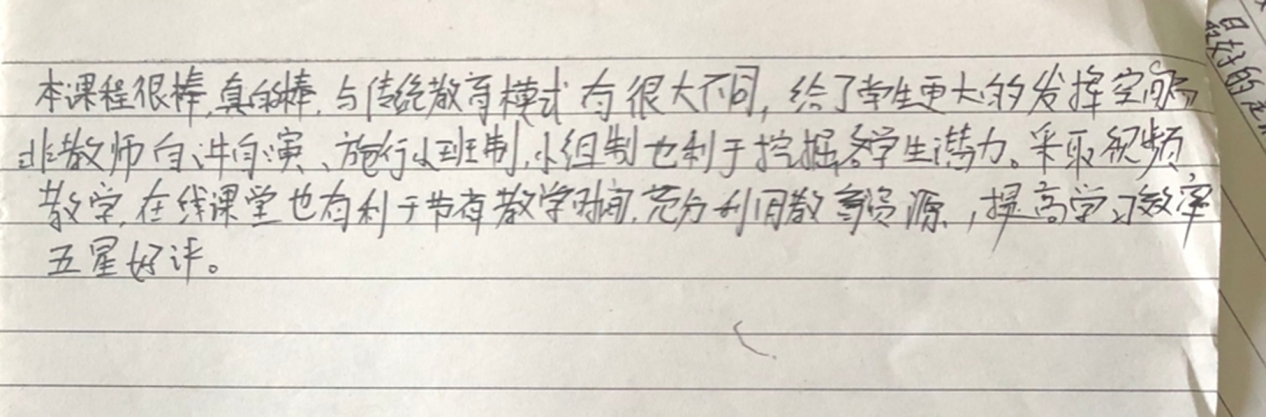 本课程很棒,真的棒,与传统教育模式有很大不同,给了学生更大的发挥空间而
非教师自讲自演、施行小班制,小组制也利于挖掘各学生潜力。采取视频
教学,在线课堂也有利于节省教学时间,充分利用教育资源,提高学习效率
五星好评。
最好的